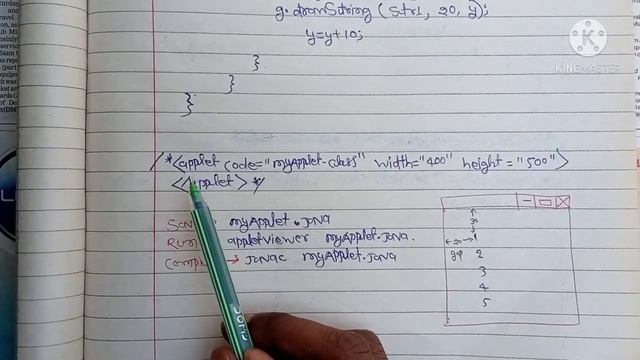 g. drawString ( str1, 20, y);
y=y+10;
}
}
}
/*<applet code="myApplet.class" width="400" height="500">
</applet> */
myApplet.java
Run appletviewer myApplet.java.
→ javac myApplet.java
30
←20→ 1
gp 2
3
4
5
KINEMASTER